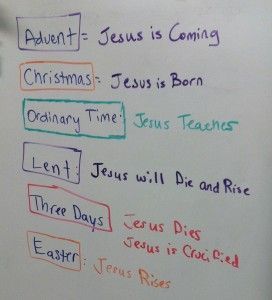 Advent = Jesus is Coming
Christmas = Jesus is Born
Ordinary Time: Jesus Teaches
Lent: Jesus will Die and Rise
Three Days Jesus Dies
Jesus is Crucified
Easter: Jesus Rises